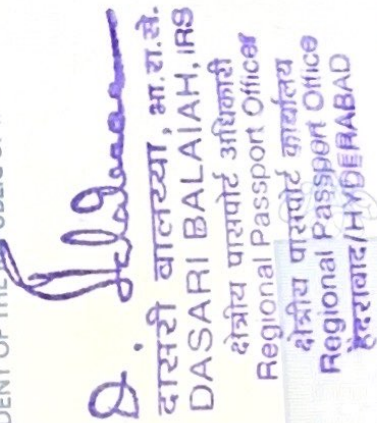 DENT OF THE
D.
दासरी बालय्या, भा.रा.से.
DASARI BALAIAH, IRS
क्षेत्रीय पासपोर्ट अधिकारी
Regional Passport Officer
क्षेत्रीय पासपोर्ट कार्यालय
Regional Passport Office
हैदराबाद/HYDERABAD